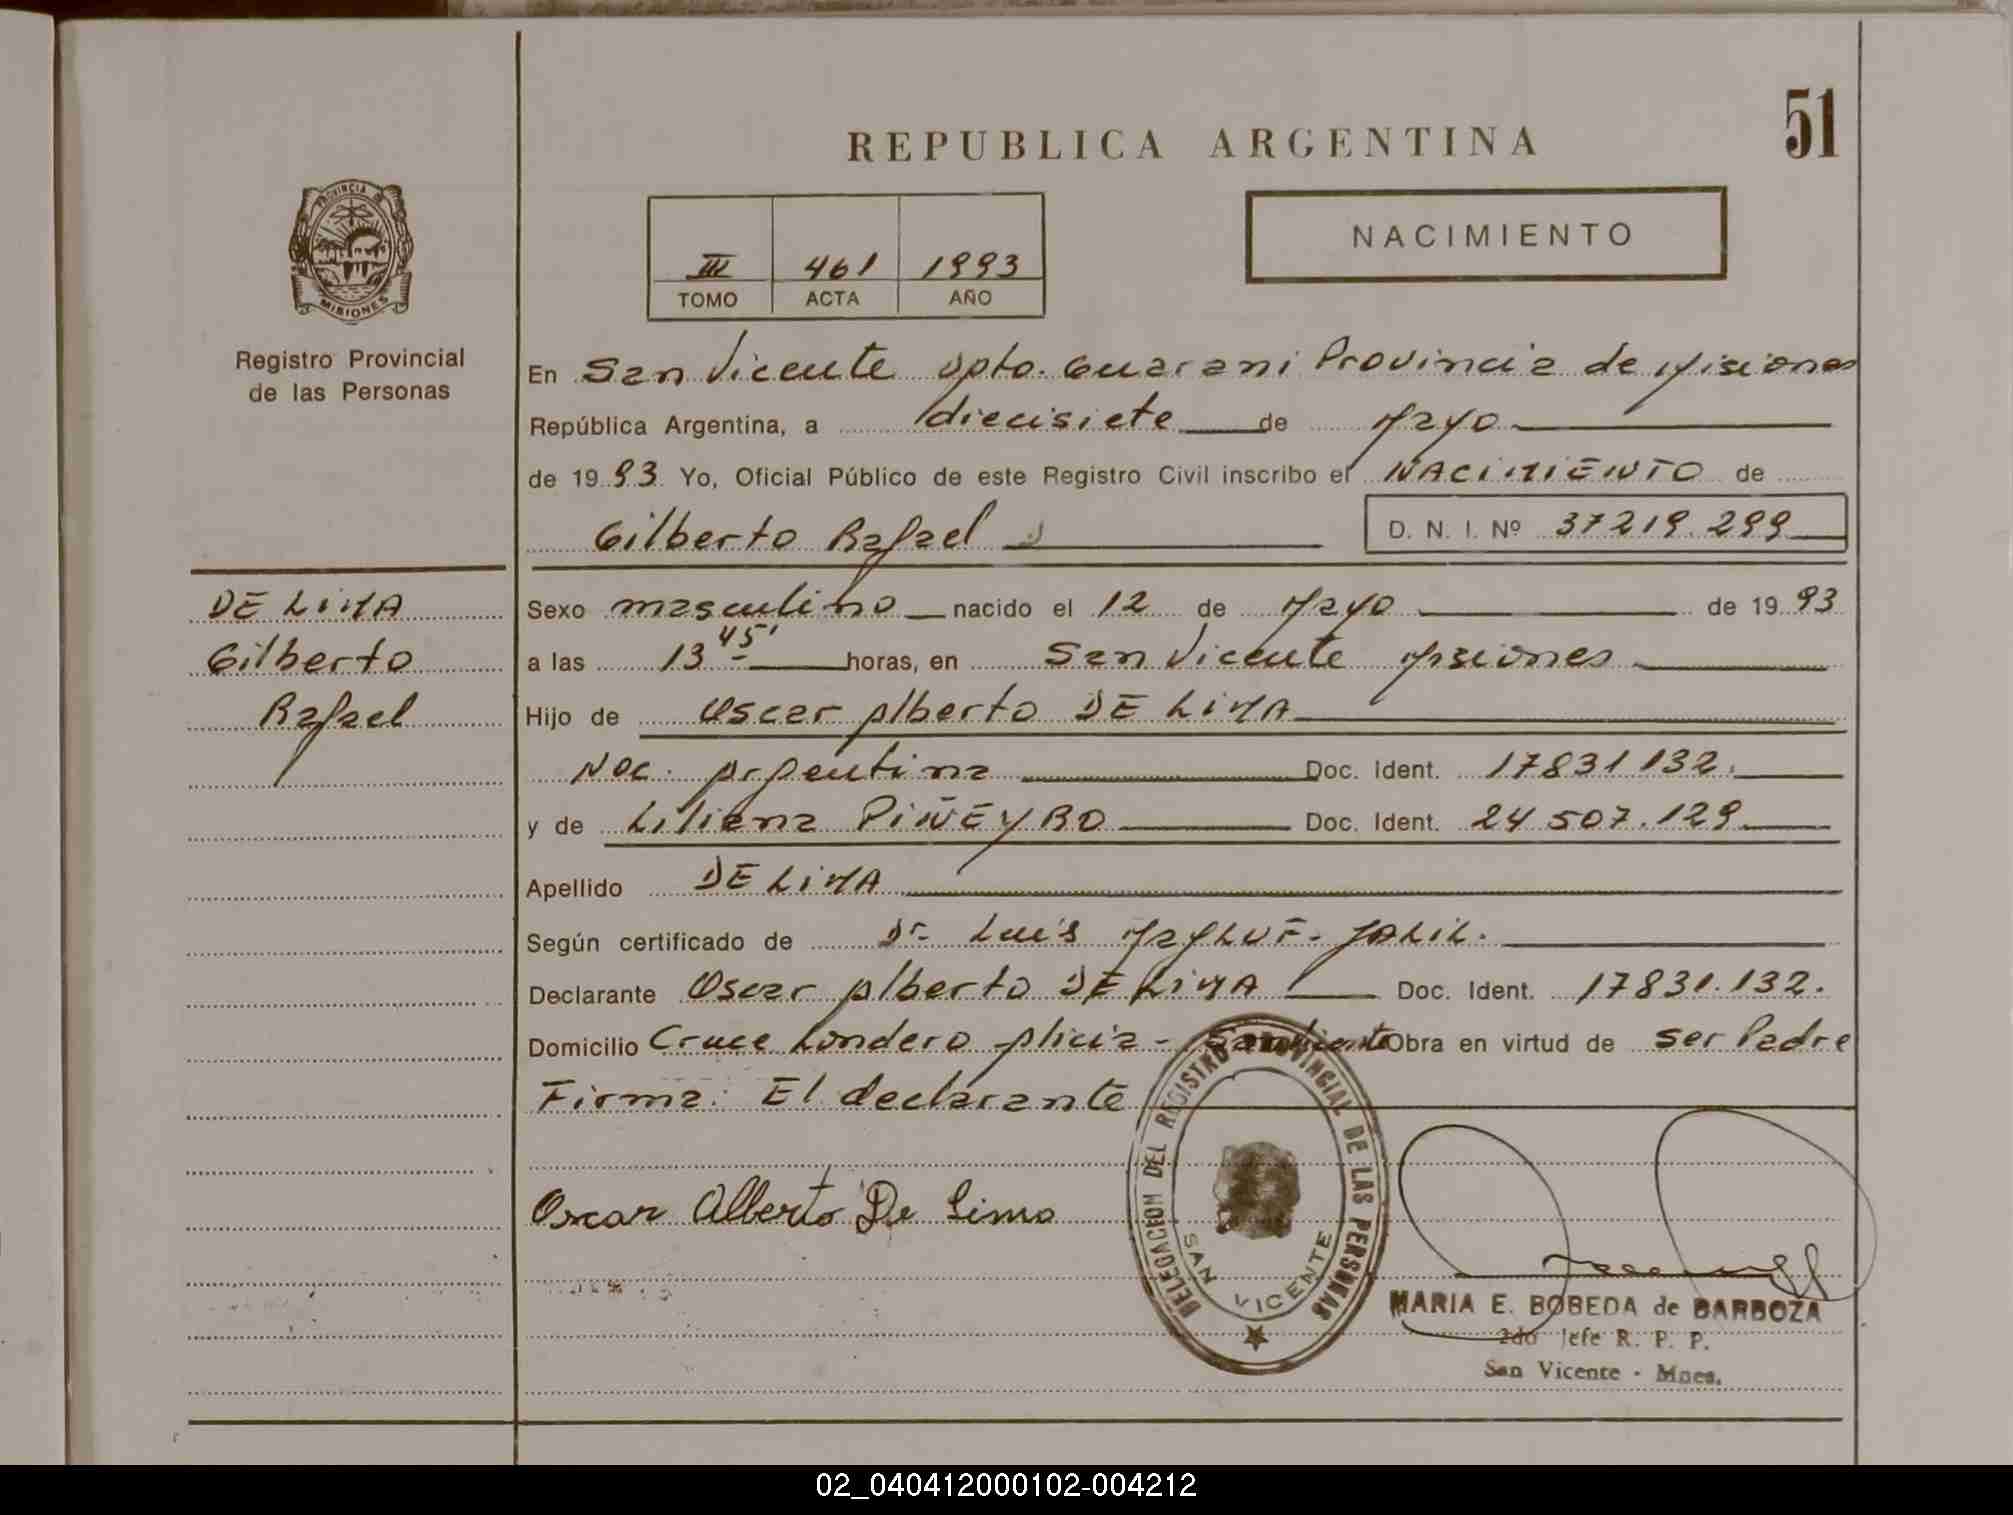 51
REPUBLICA ARGENTINA
NACIMIENTO
III 461 1993
TOMO ACTA AÑO
PROVINCIA
MISIONES
Registro Provincial
de las Personas
DE LIMA
Gilberto
Rafael
En San Vicente Dpto. Guarani Provincia de Misiones
República Argentina, a diecisiete de Mayo
de 1993 Yo, Oficial Público de este Registro Civil inscribo el NACIMIENTO de
Gilberto Rafael D. N. I. Nº 37219.299
Sexo masculino nacido el 12 de Mayo de 1993
a las 13 45' horas, en San Vicente Misiones
Hijo de Oscar Alberto DE LIMA
Nac. Argentina Doc. Ident. 17831 132.
y de Liliana PIÑEYRO Doc. Ident. 24 507.129
Apellido DE LIMA
Según certificado de Dr. Luis JALIL.
Declarante Oscar Alberto DE LIMA Doc. Ident. 17831.132.
Domicilio Cruce Londero Alicia - San Vicente Obra en virtud de ser Padre
Firma: El declarante
Oscar Alberto De Lima
DELEGACION DEL REGISTRO PROVINCIAL DE LAS PERSONAS
SAN VICENTE
MARIA E. BOBEDA de BARBOZA
2do Jefe R. P. P.
San Vicente - Mnes.
02_040412000102-004212